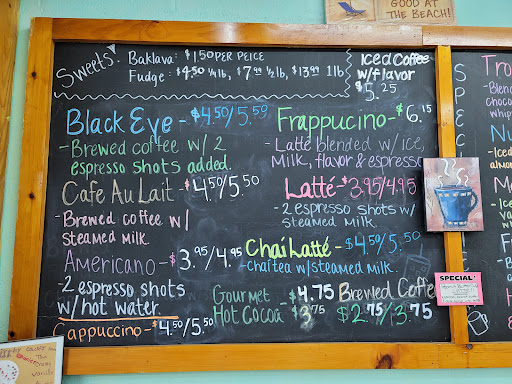 GOOD AT
THE BEACH!
Sweets:
Baklava: $1.50 PER PEICE
Fudge: $4.50 1/4 lb, $7.00 1/2 lb, $13.99 1 lb
Iced Coffee
w/flavor
$5.25
Black Eye - $4.50/5.50
- Brewed coffee w/ 2
espresso shots added.
Cafe Au Lait - $4.50/5.50
- Brewed coffee w/
steamed milk.
Americano - $3.95/4.95
- 2 espresso shots
w/hot water.
Cappuccino - $4.50/5.50
Frappucino - $6.15
- Latte blended w/ice,
Milk, flavor & espresso
Latté - $3.95/4.95
- 2 espresso shots w/
steamed milk.
Chai Latté - $4.50/5.50
- chai tea w/steamed milk.
Gourmet $4.75
Hot Cocoa $3.75
Brewed Coffee
$2.75/3.75
SPEC
Tro
- Blen
choco
whip
Nu
- Iced
almo
M
- Ice
va
F
SPECIAL:
The
Crazy
Vanilla